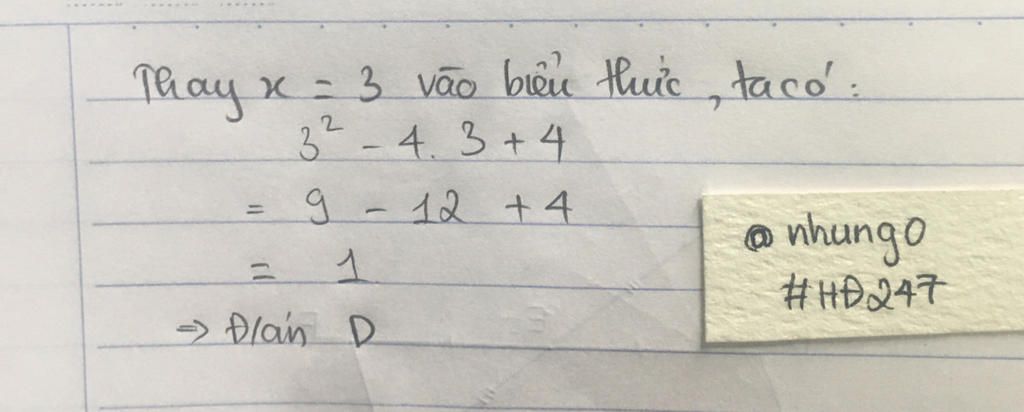 Thay x = 3 vào biểu thức, ta có:
3² - 4. 3 + 4
= 9 - 12 + 4
= 1
⇒ Đ/án D
@nhung0
#HĐ247